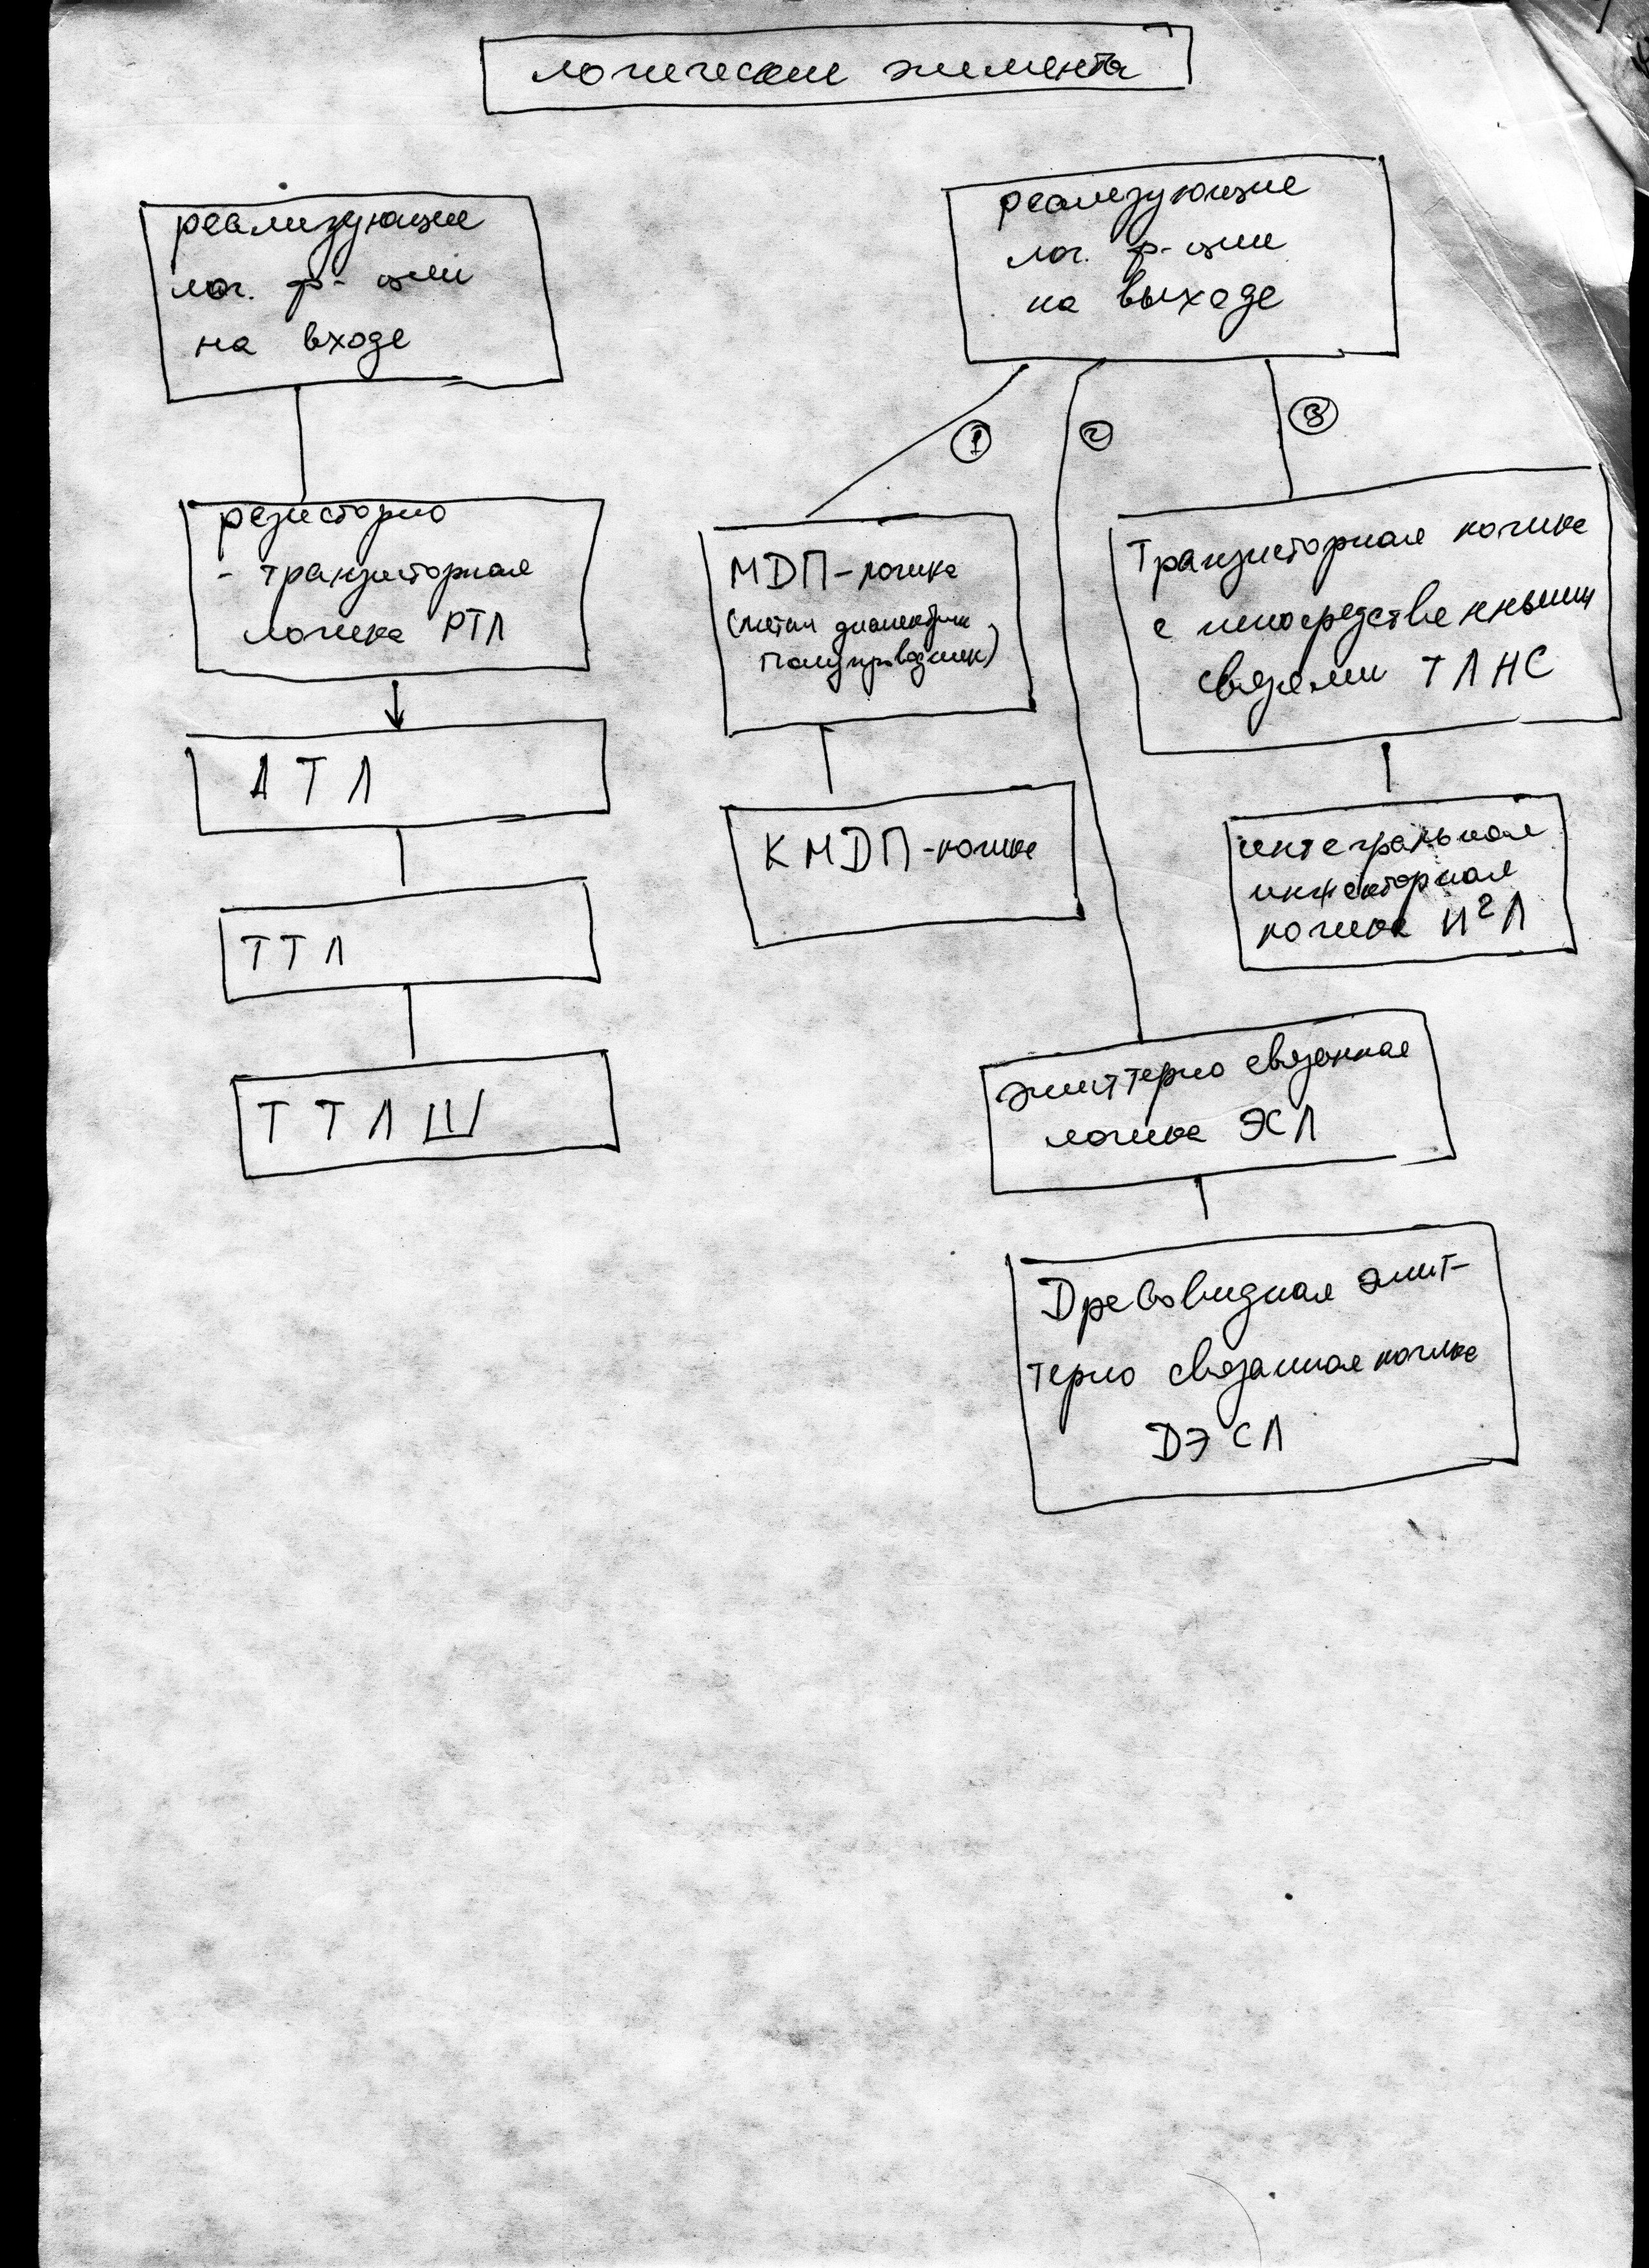 логические элементы
реализующие
лог. ф-ции
на входе
реализующие
лог. ф-ции
на выходе
1
2
3
резисторно
- транзисторная
логика РТЛ
ДТЛ
ТТЛ
ТТЛШ
МДП-логика
(метал диэлектрик
полупроводник)
КМДП-логика
Транзисторная логика
с непосредственными
связями ТЛНС
интегральная
инжекторная
логика И²Л
эмиттерно связанная
логика ЭСЛ
Древовидная эмит-
терно связанная логика
ДЭСЛ